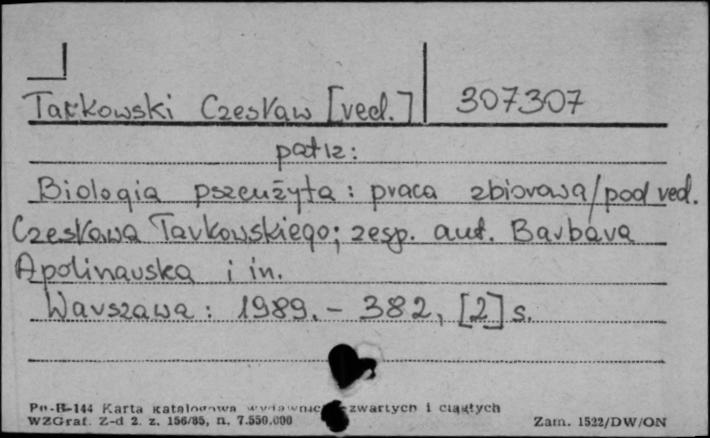 Tarkowski Czesław [red.] 307307
patrz:
Biologia pszenżyta : praca zbiorowa / pod red.
Czesława Tarkowskiego; zesp. aut. Barbara
Apolinarska i in.
Warszawa : 1989. - 382, [2] s.
Pu-B-144 Karta katalogowa wydawnictw zwartych i ciągłych
WZGraf. Z-d 2. z. 156/85, n. 7.550.000 Zam. 1522/DW/ON